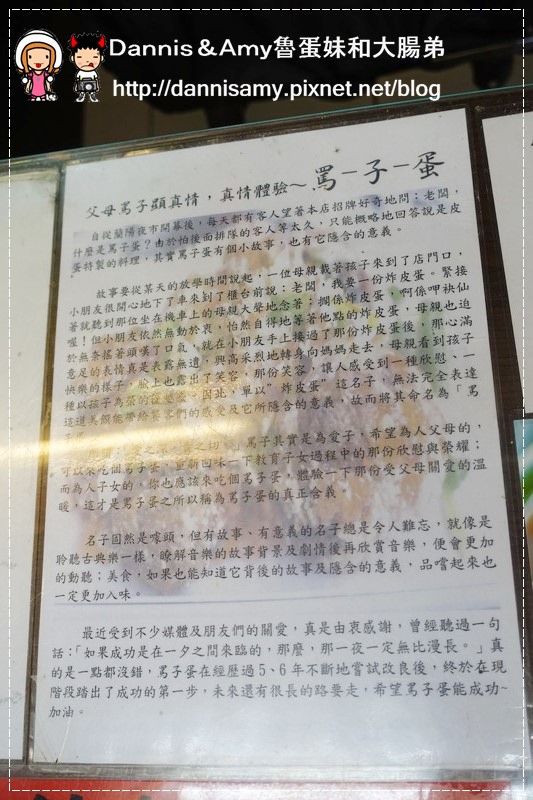 Dannis & Amy魯蛋妹和大腸弟
http://dannisamy.pixnet.net/blog
父母罵子顯真情，真情體驗～罵－子－蛋
自從蘭陽夜市開幕後，每天都有客人望著本店招牌好奇地問：老闆，
什麼是罵子蛋？由於怕後面排隊的客人等太久，只能概略地回答說是皮
蛋特製的料理，其實罵子蛋有個小故事，也有它隱含的意義。
故事要從某天的放學時間說起，一位母親載著孩子來到了店門口，
小朋友很開心地下了車來到了櫃台前說：老闆，我要一份炸皮蛋。緊接
著就聽到那位坐在機車上的母親大聲地念著：擱係炸皮蛋，啊係呷袂仙
喔！但小朋友依然無動於衷，怡然自得地等著他點的炸皮蛋，母親也迫
於無奈搖著頭嘆了口氣。就在小朋友手上接過了那份炸皮蛋後，那心滿
意足的表情真是表露無遺，興高采烈地轉身向媽媽走去，母親看到孩子
快樂的樣子，臉上也露出了笑容，那份笑容，讓人感受到一種欣慰、一
種以孩子為榮的 因此，單以"炸皮蛋"這名子，無法完全表達
這道美食能帶給 客們的感受及它所隱含的意義，故而將其命名為「罵
罵子其實是為愛子，希望為人父母的，
可以來吃個罵子蛋，重新回味一下教育子女過程中的那份欣慰與榮耀；
而為人子女的，你也應該來吃個罵子蛋，體驗一下那份受父母關愛的溫
暖，這才是罵子蛋之所以稱為罵子蛋的真正含義。
名子固然是噱頭，但有故事、有意義的名子總是令人難忘，就像是
聆聽古典樂一樣，瞭解音樂的故事背景及劇情後再欣賞音樂，便會更加
的動聽；美食，如果也能知道它背後的故事及隱含的意義，品嚐起來也
一定更加入味。
最近受到不少媒體及朋友們的關愛，真是由衷感謝，曾經聽過一句
話：「如果成功是在一夕之間來臨的，那麼，那一夜一定無比漫長。」真
的是一點都沒錯，罵子蛋在經歷過5、6年不斷地嘗試改良後，終於在現
階段踏出了成功的第一步，未來還有很長的路要走，希望罵子蛋能成功~
加油。